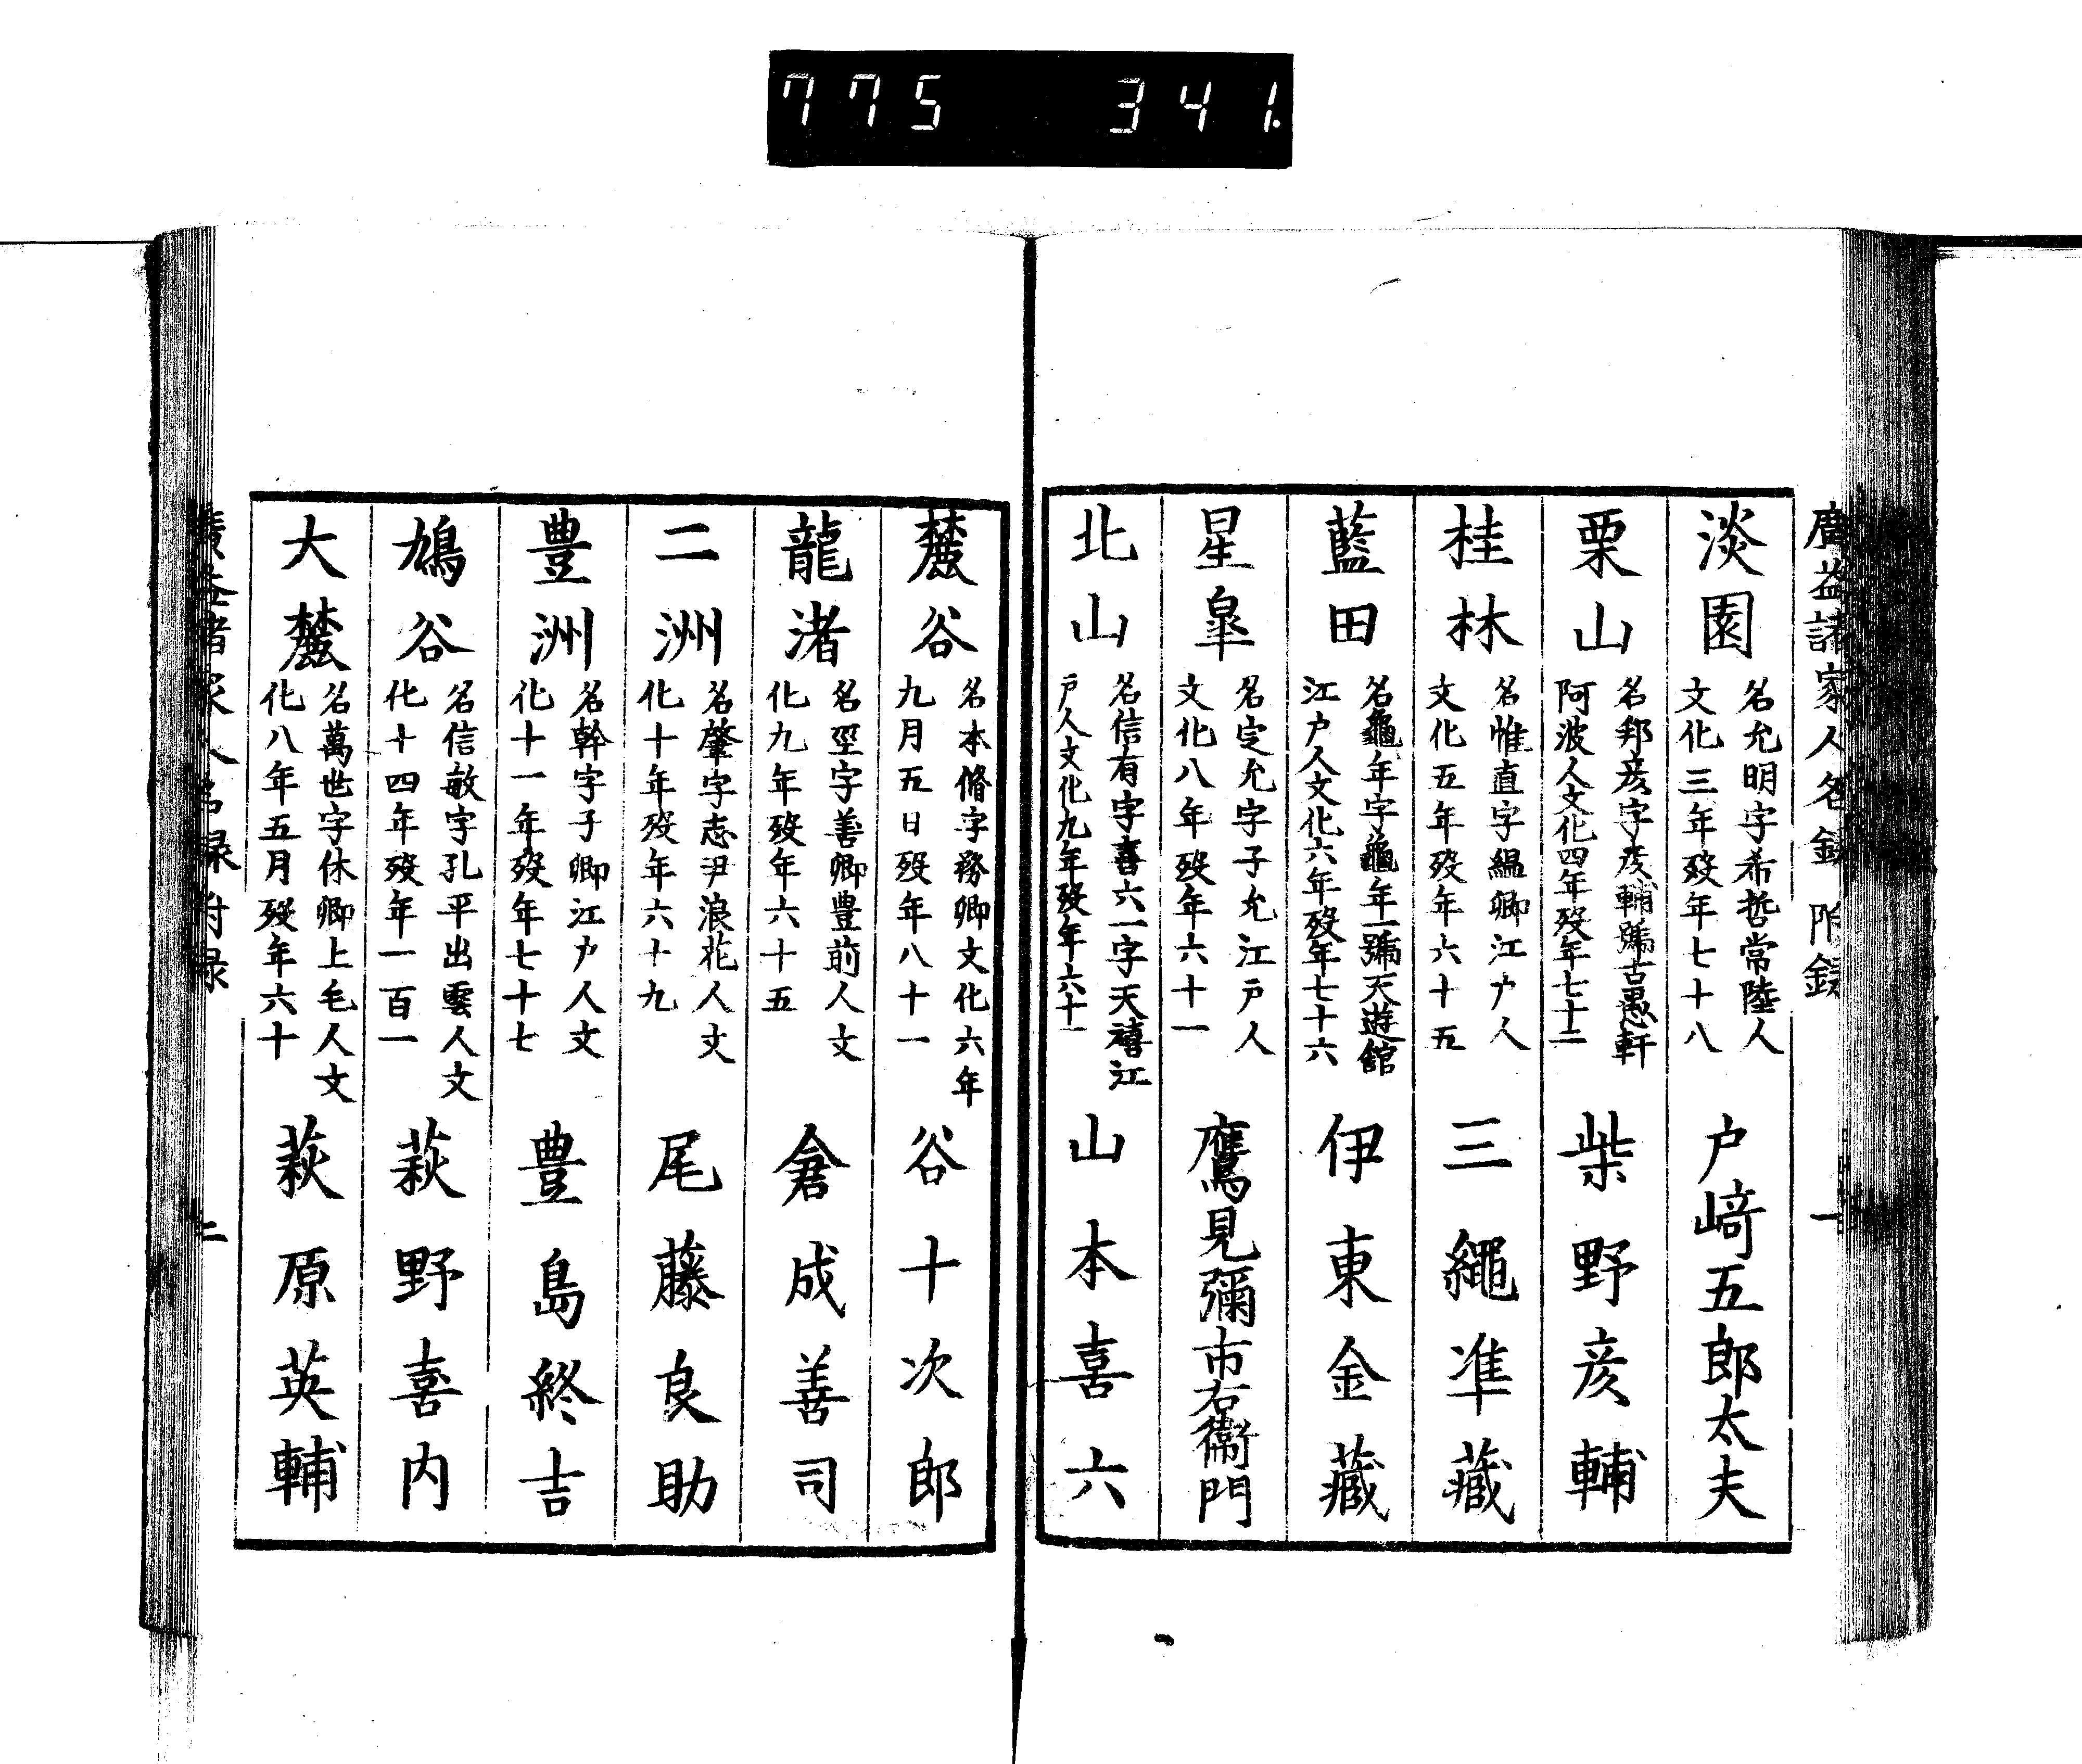 775 341.
廣益諸家人名録 附録 一
淡園 名允明字希哲常陸人文化三年歿年七十八 戸﨑五郎太夫
栗山 名邦彦字彦輔號古愚軒阿波人文化四年歿年七十二 柴野彦輔
桂林 名惟直字縕卿江戸人文化五年歿年六十五 三繩準藏
藍田 名龜年字龜年一號天遊館江戸人文化六年歿年七十六 伊東金藏
星皐 名定允字子允江戸人文化八年歿年六十一 鷹見彌市右衞門
北山 名信有字喜六一字天禧江戸人文化九年歿年六十一 山本喜六
麓谷 名本脩字務卿文化六年九月五日歿年八十一 谷十次郎
龍渚 名巠字善卿豊前人文化九年歿年六十五 倉成善司
二洲 名肇字志尹浪花人文化十年歿年六十九 尾藤良助
豊洲 名幹字子卿江戸人文化十一年歿年七十七 豊島終吉
鳩谷 名信敏字孔平出雲人文化十四年歿年一百一 萩野喜内
大麓 名萬世字休卿上毛人文化八年五月歿年六十 萩原英輔
廣益諸家人名録附録 二